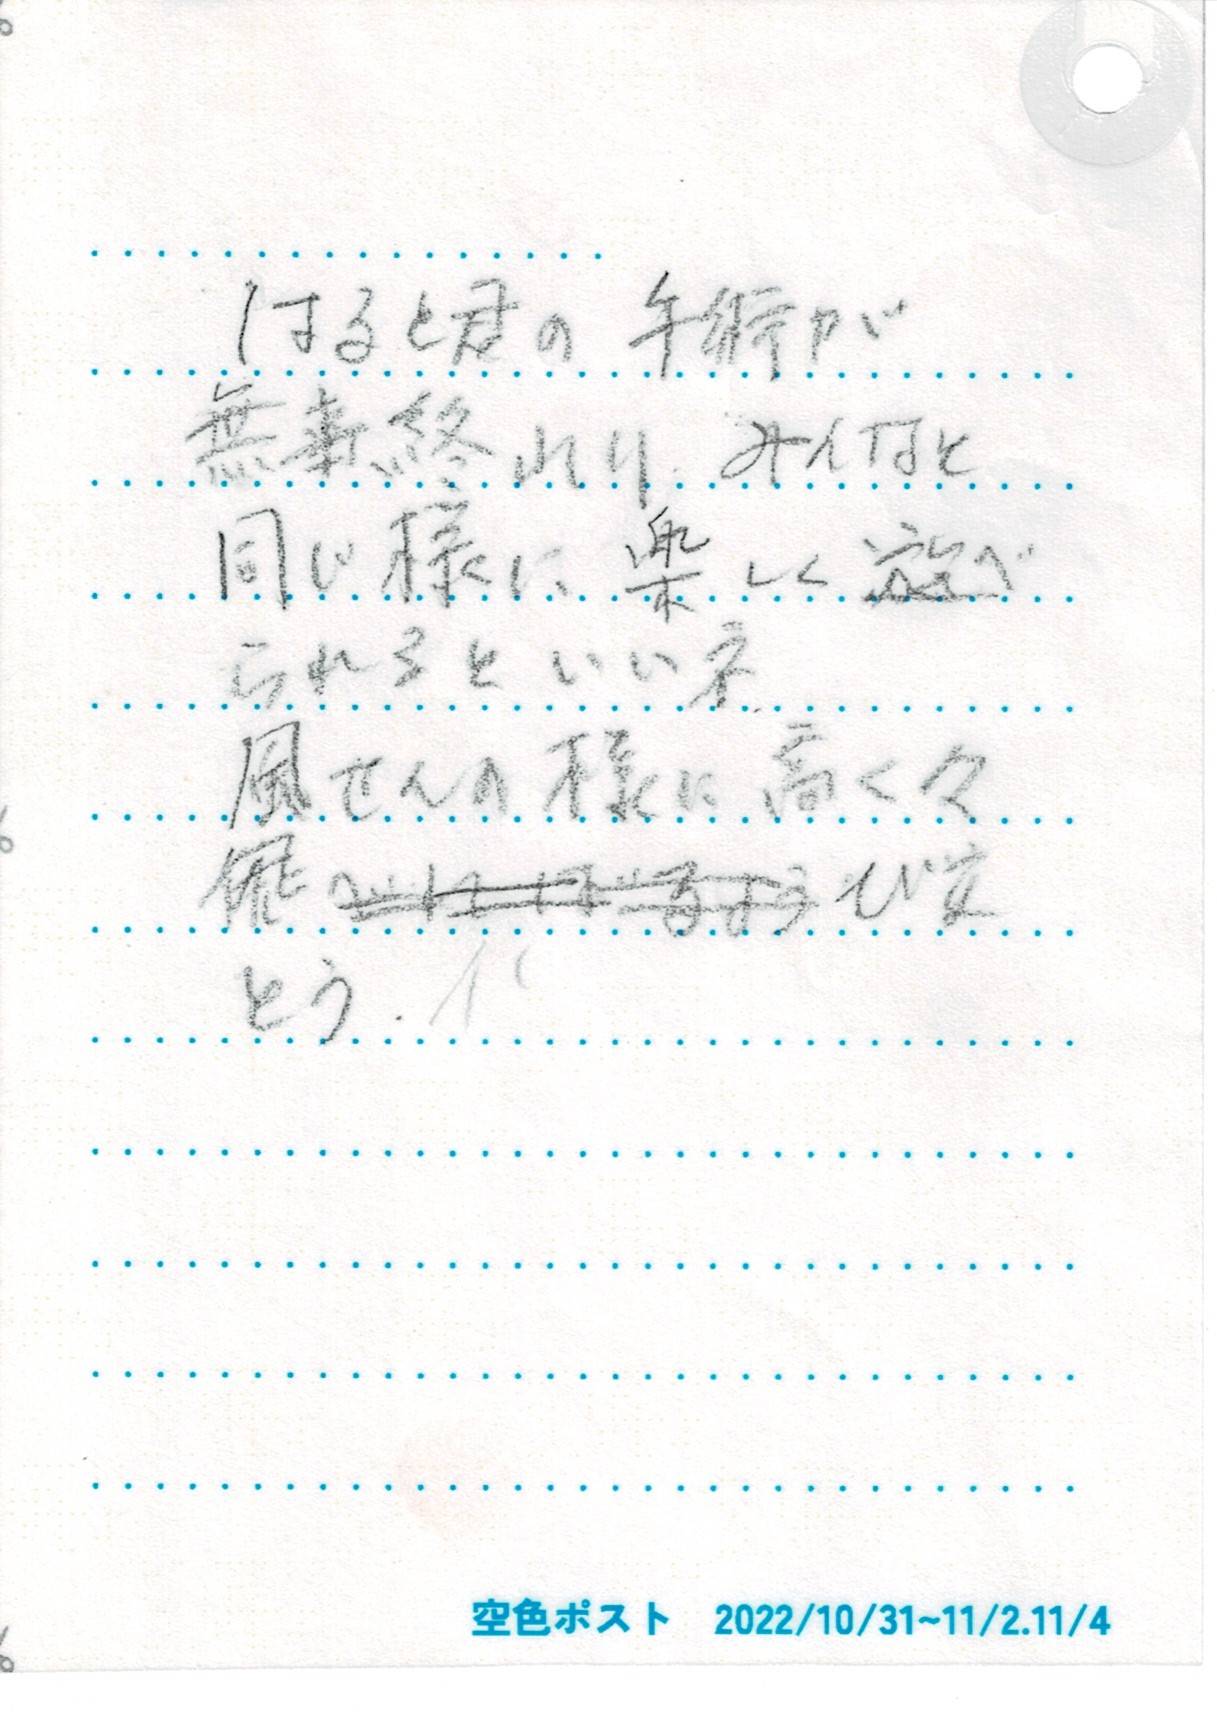 はると君の 手術が
無事終れり、みんなと
同じ様に 楽しく 遊べ
られるといいネ、
風せんの様に 高く々
飛 びま
とう.
空色ポスト 2022/10/31~11/2.11/4